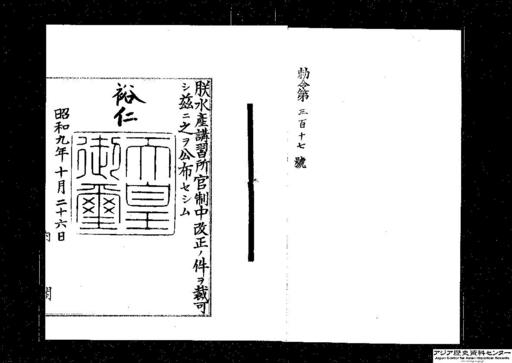 勅令第三百十七號
朕水產講習所官制中改正ノ件ヲ裁可
シ茲ニ之ヲ公布セシム
裕仁
天皇御璽
昭和九年十月二十六日
内閣
アジア歴史資料センター
Japan Center for Asian Historical Records